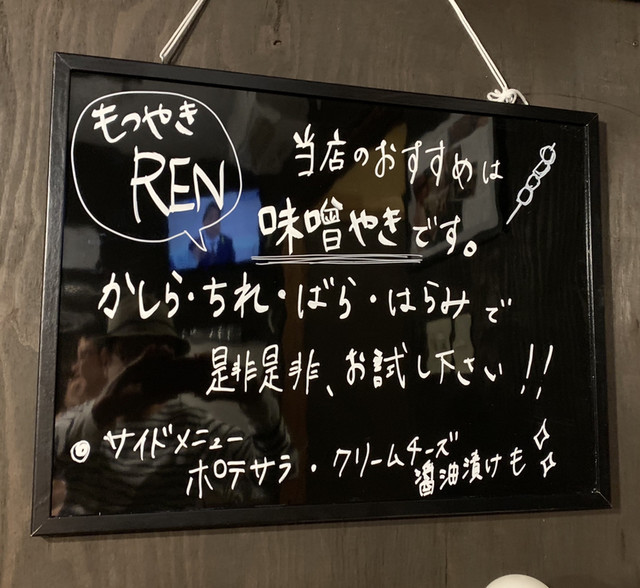 もつやき
REN
当店のおすすめは
味噌やきです。
かしら・ちれ・ばら・はらみで
是非是非、お試し下さい!!
◎ サイドメニュー
ポテサラ・クリームチーズ
醤油漬けも